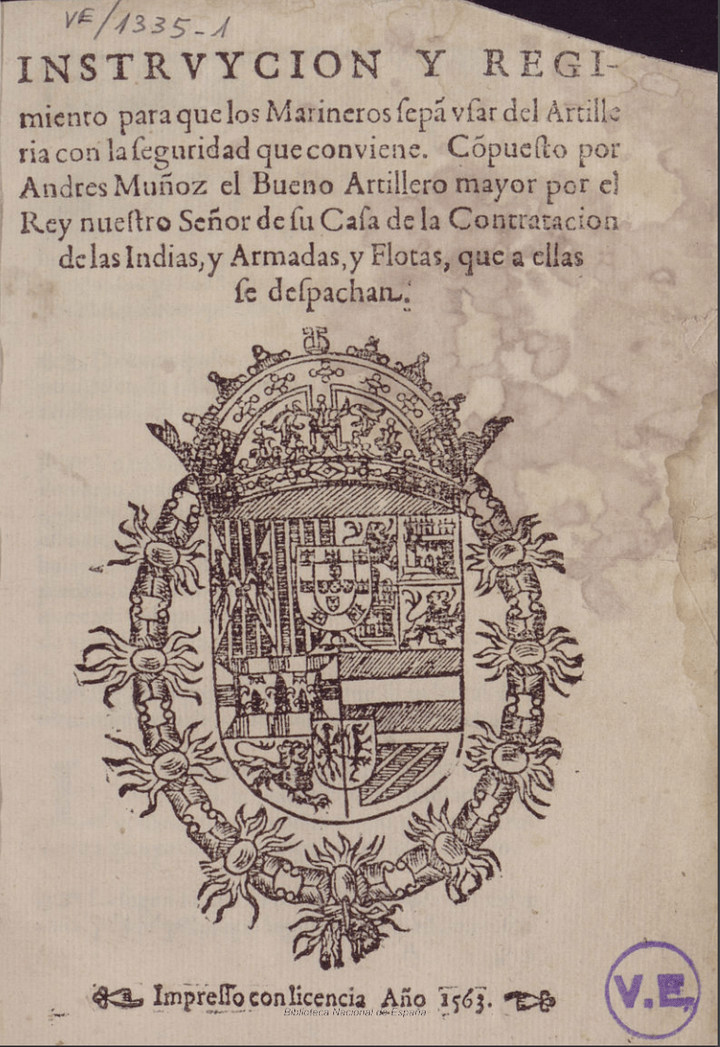 VE/1335-1
INSTRVYCION Y REGI-
miento para que los Marineros ſepã vſar del Artille
ria con la ſeguridad que conviene. Cõpueſto por
Andres Muñoz el Bueno Artillero mayor por el
Rey nueſtro Señor de ſu Caſa de la Contratacion
de las Indias, y Armadas, y Flotas, que a ellas
ſe deſpachan.
Impreſſo con licencia Año 1563.
Biblioteca Nacional de España
V.E.